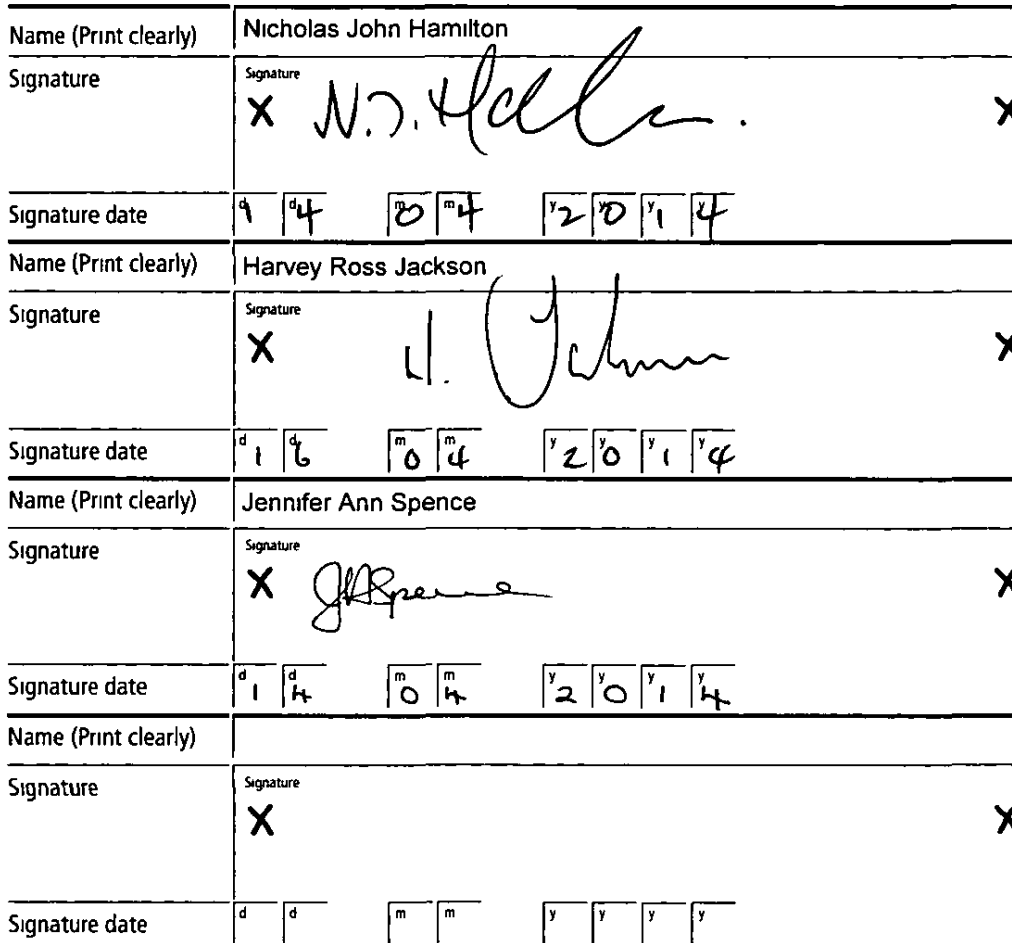 Name (Print clearly) Nicholas John Hamilton
Signature Signature
X N.J. Hamilton X
Signature date d1 d4 m0 m4 y2 y0 y1 y4
Name (Print clearly) Harvey Ross Jackson
Signature Signature
X H. Jackson X
Signature date d1 d6 m0 m4 y2 y0 y1 y4
Name (Print clearly) Jennifer Ann Spence
Signature Signature
X JASpence X
Signature date d1 d4 m0 m4 y2 y0 y1 y4
Name (Print clearly)
Signature Signature
X X
Signature date d d m m y y y y